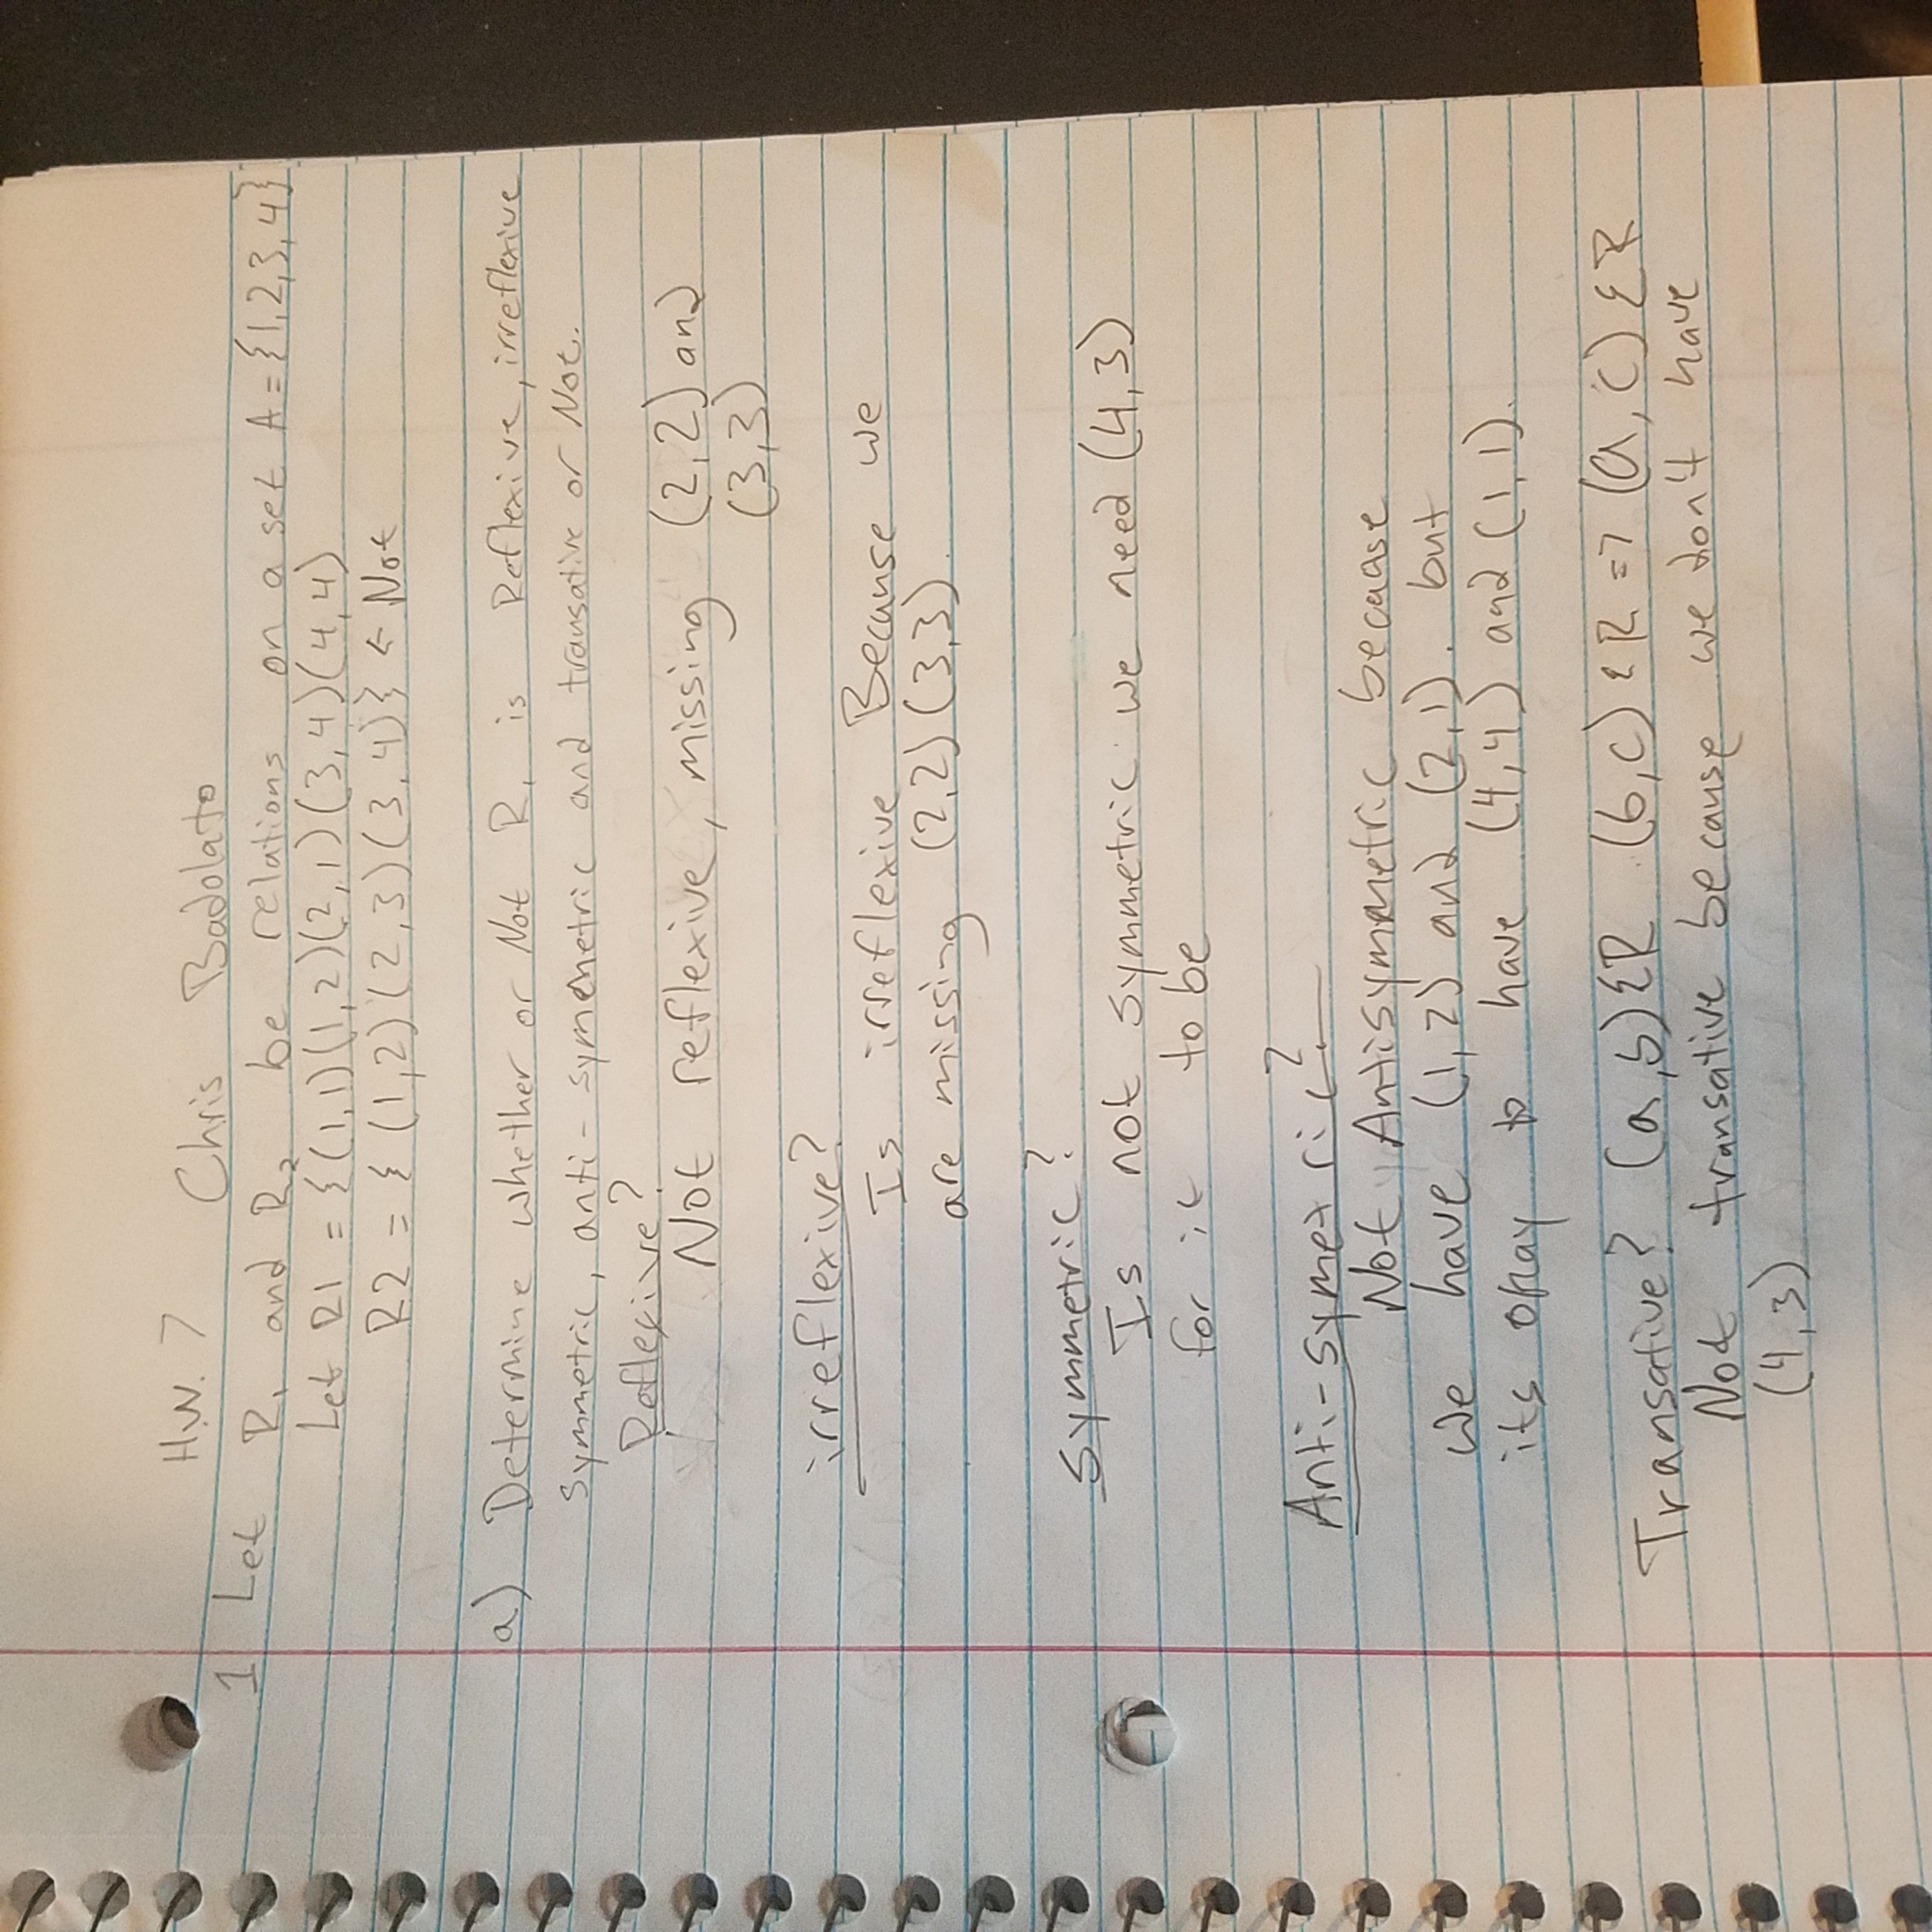 H.W. 7 Chris Badolato
1 Let R₁ and R₂ be relations on a set A = {1,2,3,4}
Let R1 = {(1,1)(1,2)(2,1)(3,4)(4,4)
R2 = { (1,2)(2,3)(3,4)} ← Not
a) Determine whether or Not R₁ is Reflexive, irreflexive
Symmetric, anti-symmetric and transative or Not.
Reflexive?
Not reflexive, missing (2,2) and
(3,3)
irreflexive?
Is irreflexive Because we
are missing (2,2)(3,3).
Symmetric?
Is not symmetric we need (4,3)
for it to be
Anti-symetric?
Not Antisymmetric because
we have (1,2) and (2,1). but
its okay to have (4,4) and (1,1).
Transative? (a,b)ƐR (b,c)ƐR => (a,c)ƐR
Not transative because we don't have
(4,3)